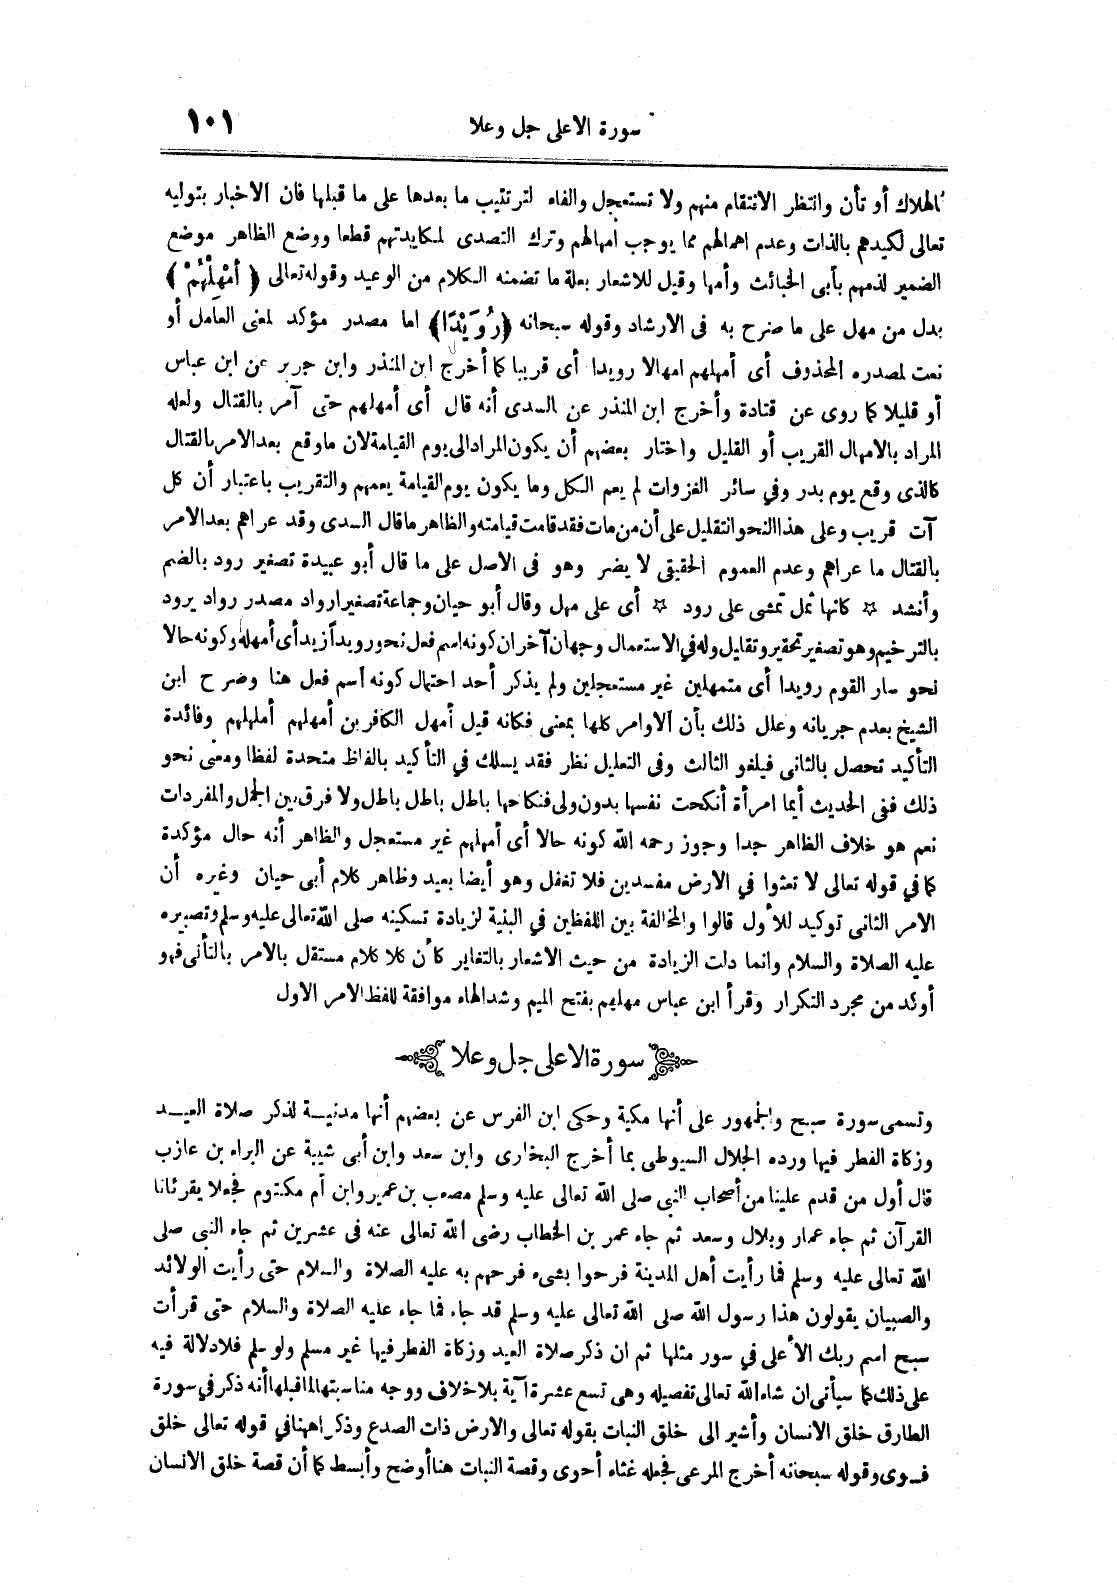 سورة الاعلى جل وعلا ١٠١
بالهلاك أو تأن وانتظر الانتقام منهم ولا تستعجل والفاء لترتيب ما بعدها على ما قبلها فان الاخبار بتوليه
تعالى لكيدهم بالذات وعدم اهمالهم مما يوجب امهالهم وترك التصدى لمكايدتهم قطعا ووضع الظاهر موضع
الضمير لذمهم بأبى الخبائث وأمها وقيل للاشعار بعلة ما تضمنه الكلام من الوعيد وقوله تعالى ﴿ أَمْهِلْهُمْ ﴾
بدل من مهل على ما صرح به فى الارشاد وقوله سبحانه ﴿رُوَيْدًا﴾ اما مصدر مؤكد لمعنى العامل أو
نعت لمصدره المحذوف أى أمهلهم امهالا رويدا أى قريبا كما أخرج ابن المنذر وابن جرير عن ابن عباس
أو قليلا كما روى عن قتادة وأخرج ابن المنذر عن السدى أنه قال أى أمهلهم حتى آمر بالقتال ولعله
المراد بالامهال القريب أو القليل واختار بعضهم أن يكون المراد الى يوم القيامة لان ما وقع بعد الامر بالقتال
كالذى وقع يوم بدر وفي سائر الغزوات لم يعم الكل وما يكون يوم القيامة يعمهم والتقريب باعتبار أن كل
آت قريب وعلى هذا النحو التقليل على أن من مات فقد قامت قيامته والظاهر ما قال السدى وقد عراهم بعد الامر
بالقتال ما عراهم وعدم العموم الحقيقى لا يضر وهو فى الاصل على ما قال أبو عبيدة تصغير رود بالضم
وأنشد ☆ كانها ثمل تمشى على رود ☆ أى على مهل وقال أبو حيان وجماعة تصغير ارواد مصدر رواد يرود
بالترخيم وهو تصغير تحقير وتقليل وله في الاستعمال وجهان آخران كونه اسم فعل نحو رويداً زيد أى أمهله وكونه حالا
نحو سار القوم رويدا أى متمهلين غير مستعجلين ولم يذكر أحد احتمال كونه اسم فعل هنا وصرح ابن
الشيخ بعدم جريانه وعلل ذلك بأن الاوامر كلها بمعنى فكانه قيل أمهل الكافرين أمهلهم أمهلهم وفائدة
التأكيد تحصل بالثانى فيلغو الثالث وفى التعليل نظر فقد يسلك في التأكيد بالفاظ متحدة لفظا ومعنى نحو
ذلك ففى الحديث أيما امرأة أنكحت نفسها بدون ولى فنكاحها باطل باطل باطل ولا فرق بين الجمل والمفردات
نعم هو خلاف الظاهر جدا وجوز رحمه الله كونه حالا أى أمهلهم غير مستعجل والظاهر أنه حال مؤكدة
كما في قوله تعالى لا تعثوا في الارض مفسدين فلا تغفل وهو أيضا بعيد وظاهر كلام أبى حيان وغيره أن
الامر الثانى توكيد للأول قالوا والمخالفة بين اللفظين في البنية لزيادة تسكينه صلى الله تعالى عليه وسلم وتصبيره
عليه الصلاة والسلام وانما دلت الزيادة من حيث الاشعار بالتغاير كأن كلا كلام مستقل بالامر بالتأنى فهو
أوكد من مجرد التكرار وقرأ ابن عباس مهلهم بفتح الميم وشد الهاء موافقة للفظ الامر الاول
سورة الاعلى جل وعلا
وتسمى سورة سبح والجمهور على أنها مكية وحكى ابن الفرس عن بعضهم أنها مدنية لذكر صلاة العيد
وزكاة الفطر فيها ورده الجلال السيوطى بما أخرج البخارى وابن سعد وابن أبى شيبة عن البراء بن عازب
قال أول من قدم علينا من أصحاب النبى صلى الله تعالى عليه وسلم مصعب بن عمير وابن أم مكتوم فجعلا يقرئانا
القرآن ثم جاء عمار وبلال وسعد ثم جاء عمر بن الخطاب رضى الله تعالى عنه فى عشرين ثم جاء النبى صلى
الله تعالى عليه وسلم فما رأيت أهل المدينة فرحوا بشىء فرحهم به عليه الصلاة والسلام حتى رأيت الولائد
والصبيان يقولون هذا رسول الله صلى الله تعالى عليه وسلم قد جاء فما جاء عليه الصلاة والسلام حتى قرأت
سبح اسم ربك الأعلى في سور مثلها ثم ان ذكر صلاة العيد وزكاة الفطر فيها غير مسلم ولو سلم فلا دلالة فيه
على ذلك كما سيأتى ان شاء الله تعالى تفصيله وهى تسع عشرة آية بلا خلاف ووجه مناسبتها لما قبلها أنه ذكر في سورة
الطارق خلق الانسان وأشير الى خلق النبات بقوله تعالى والارض ذات الصدع وذكر اههنا في قوله تعالى خلق
فسوى وقوله سبحانه أخرج المرعى فجعله غثاء أحوى وقصة النبات هنا أوضح وأبسط كما أن قصة خلق الانسان